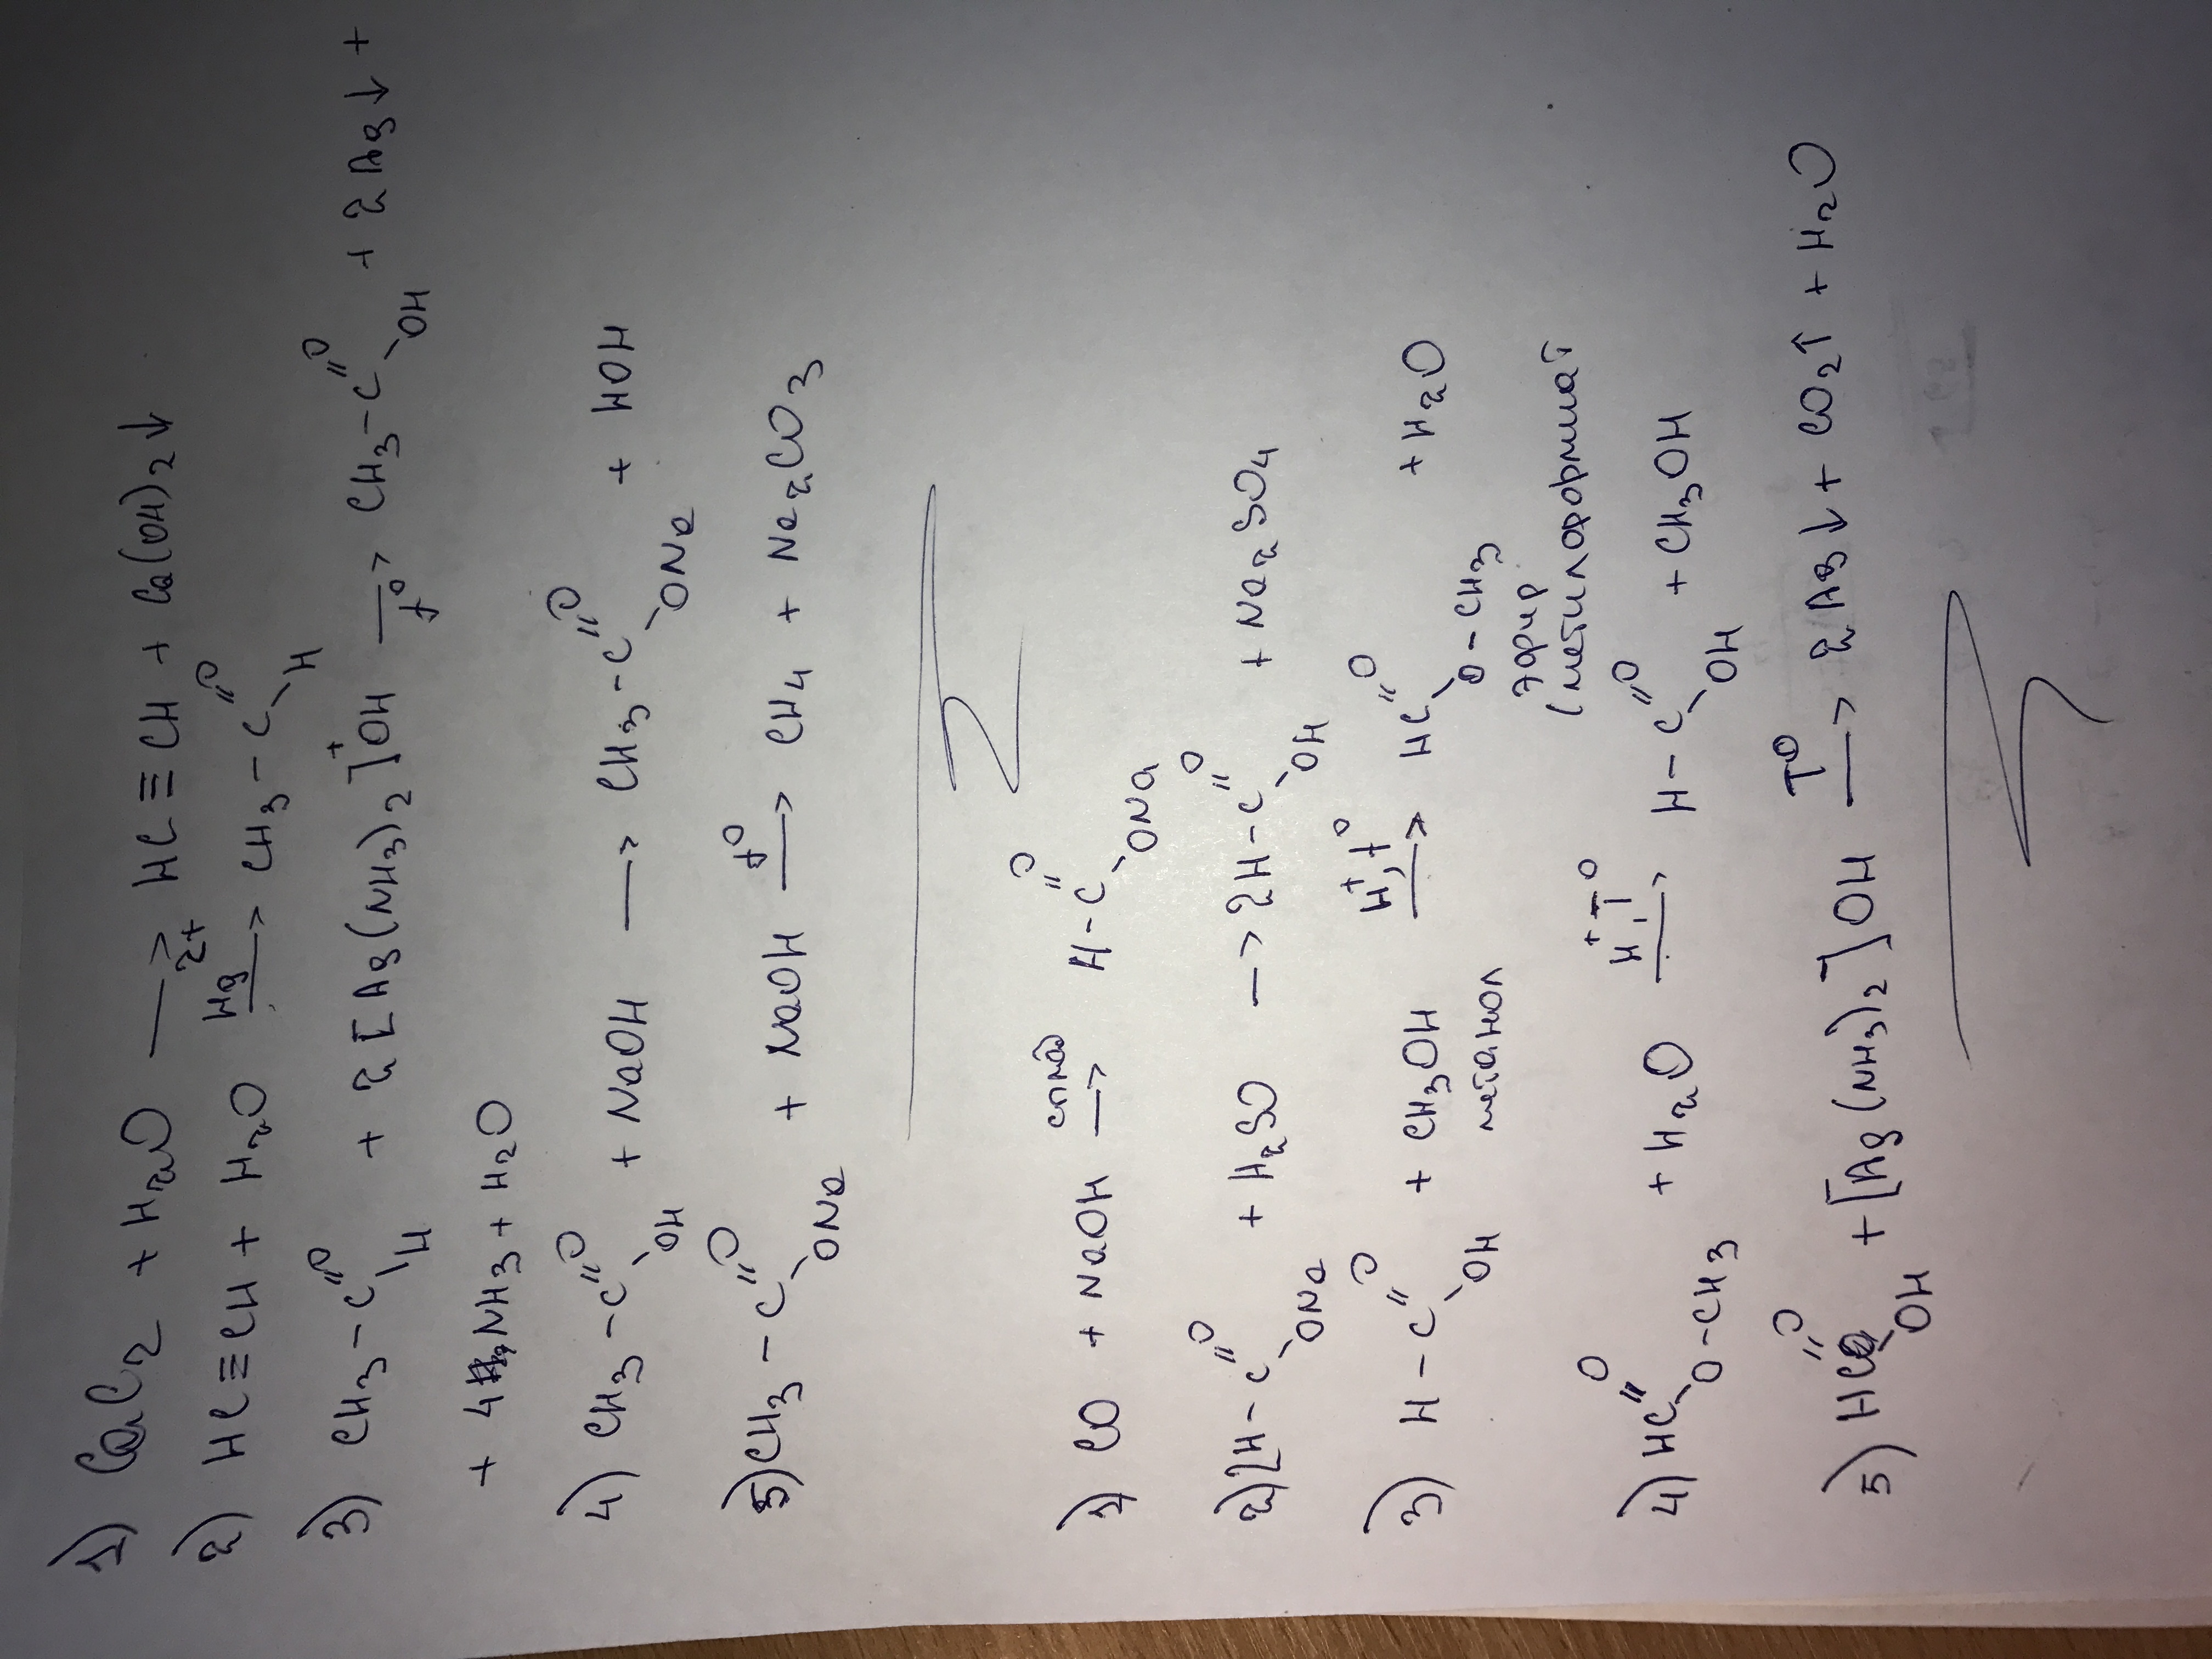 1) CaC₂ + H₂O → HC≡CH + Ca(OH)₂↓
2) HC≡CH + H₂O —Hg²⁺→ CH₃-C(=O)-H
3) CH₃-C(=O)-H + 2[Ag(NH₃)₂]⁺OH —t°→ CH₃-C(=O)-OH + 2Ag↓ +
+ 4NH₃ + H₂O
4) CH₃-C(=O)-OH + NaOH → CH₃-C(=O)-ONa + HOH
5) CH₃-C(=O)-ONa + NaOH —t°→ CH₄ + Na₂CO₃
1) CO + NaOH → H-C(=O)-ONa
2) 2H-C(=O)-ONa + H₂SO → 2H-C(=O)-OH + Na₂SO₄
3) H-C(=O)-OH + CH₃OH —H⁺, t°→ HC(=O)-O-CH₃ + H₂O
метанол эфир
(метилформиат
4) HC(=O)-O-CH₃ + H₂O —H⁺, T°→ H-C(=O)-OH + CH₃OH
5) HC(=O)-OH + [Ag(NH₃)₂]OH —T°→ 2Ag↓ + CO₂↑ + H₂O